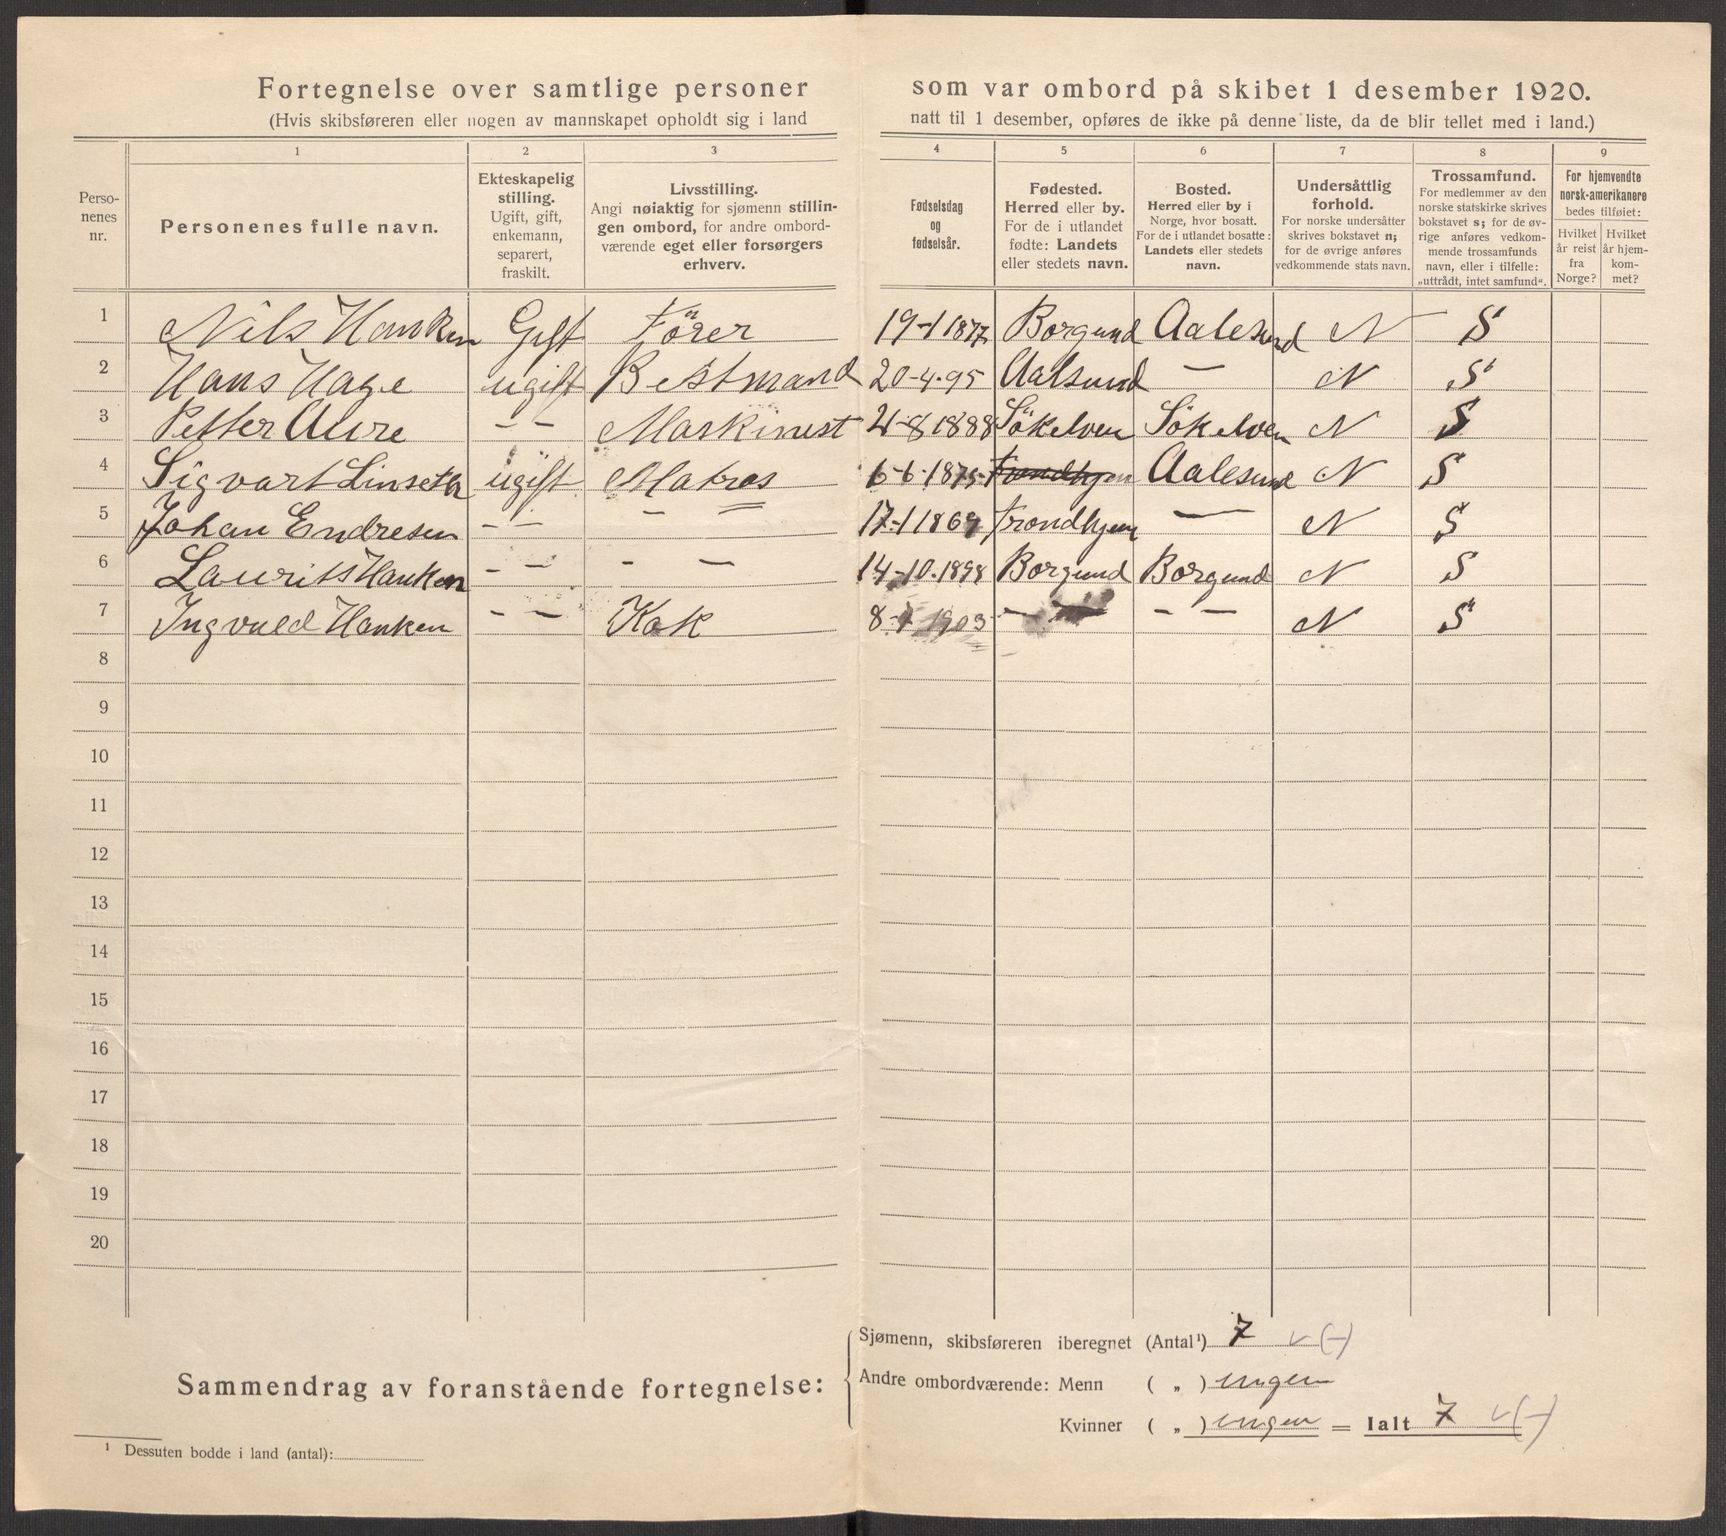 Fortegnelse over samtlige personer som var ombord på skibet 1 desember 1920.
(Hvis skibsføreren eller nogen av mannskapet opholdt sig i land natt til 1 desember, opføres de ikke på denne liste, da de blir tellet med i land.)
Perso-
nenes
nr.
1
Personenes fulle navn.
2
Ekteskapelig
stilling.
Ugift, gift,
enkemann,
separert,
fraskilt.
3
Livsstilling.
Angi nøiaktig for sjømenn stillin-
gen ombord, for andre ombord-
værende eget eller forsørgers
erhverv.
4
Fødselsdag
og
fødselsår.
5
Fødested.
Herred eller by.
For de i utlandet
fødte: Landets
eller stedets navn.
6
Bosted.
Herred eller by i
Norge, hvor bosatt.
For de i utlandet bosatte:
Landets eller stedets
navn.
7
Undersåttlig
forhold.
For norske undersåtter
skrives bokstavet n;
for de øvrige anføres
vedkommende stats navn.
8
Trossamfund.
For medlemmer av den
norske statskirke skrives
bokstavet s; for de øv-
rige anføres vedkom-
mende trossamfunds
navn, eller i tilfelle:
„uttrådt, intet samfund".
9
For hjemvendte
norsk-amerikanere
bedes tilføiet:
Hvilket
år reist
fra
Norge?
Hvilket
år hjem-
kom-
met?
1 Nils Hanken Gift Förer 19-1 1877 Borgund Aalesund N S
2 Hans Hage ugift Bestmand 20-4-95 Aalsund — N S
3 Petter Aure — — Maskinist 21-8 1888 Sökelven Sökelven N S
4 Sigvart Linseth ugift Matros 6-6-1875 Trondhjem Aalesund N S
5 Johan Endresen — — — = 17-1 1869 Trondhjem — N S
6 Laurits Hanken — — — — 14-10-1898 Borgund Borgund N S
7 Ingvald Hanken — — Kok 8- 1903 — — — N S
8
9
10
11
12
13
14
15
16
17
18
19
20
Sammendrag av foranstående fortegnelse:
Sjømenn, skibsføreren iberegnet (Antal¹) 7 v (-)
Andre ombordværende: Menn ( „ ) ingen
Kvinner ( „ ) ingen = Ialt 7 v (-)
¹ Dessuten bodde i land (antal):